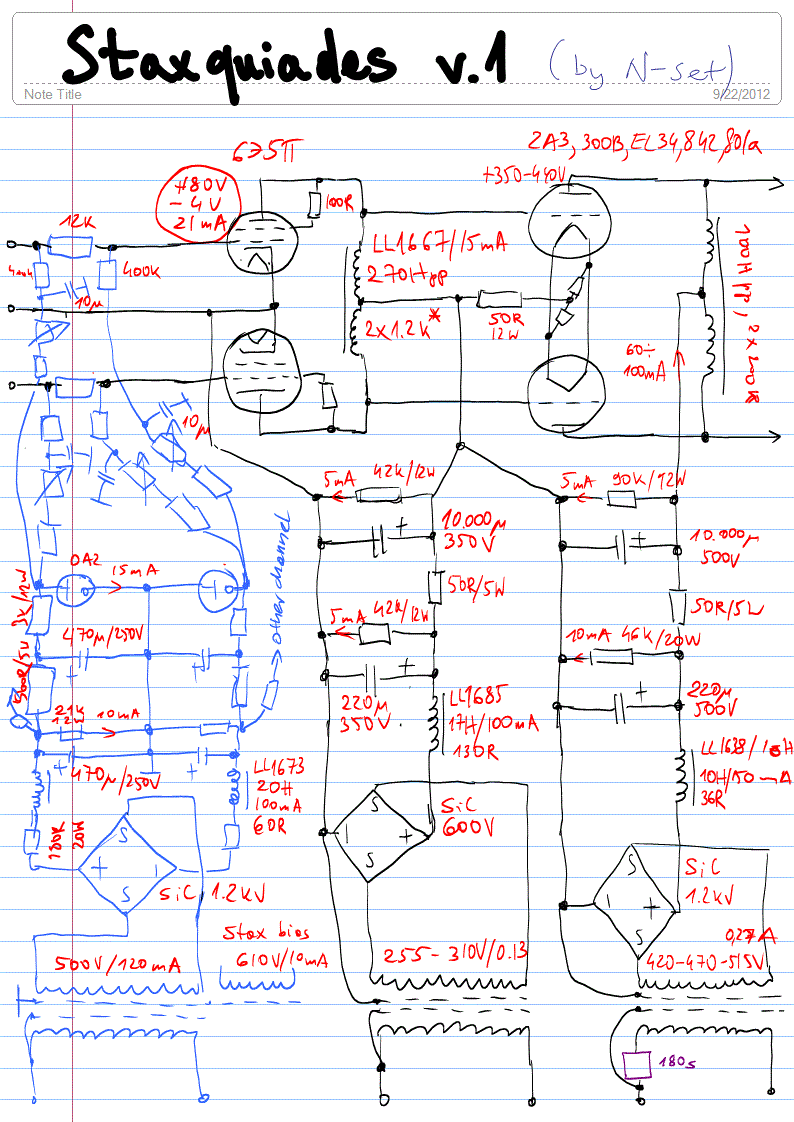 Staxquiades v.1 (by N-set)
Note Title
9/22/2012
6Э5П
2A3, 300B, EL34, 842, 801a
+350-440V
+80V
- 4V
21mA
100R
12K
400K
400K
10μ
LL1667/15mA
270Hpp
2x1.2k*
50R
12W
100Hpp, 2x200R
60÷
100mA
10μ
5mA 42k/12W
5mA 90k/12W
10.000μ
350V
10.000μ
500V
OA2
15mA
→ other channel
3k/12W
50R/5W
50R/5W
470μ/250V
5mA 42k/12W
10mA 46k/20W
500R/5W
21K
12W
10mA
220μ
350V
220μ
500V
LL1685
17H/100mA
130R
470μ/250V
LL1673
20H
100mA
60R
LL1638/10H
10H/150mA
36R
180R
20W
SiC
600V
SiC
1.2kV
SiC 1.2kV
Stax bias
610V/10mA
500V/120mA
255-310V/0.13
0,27A
420-470-515V
180s